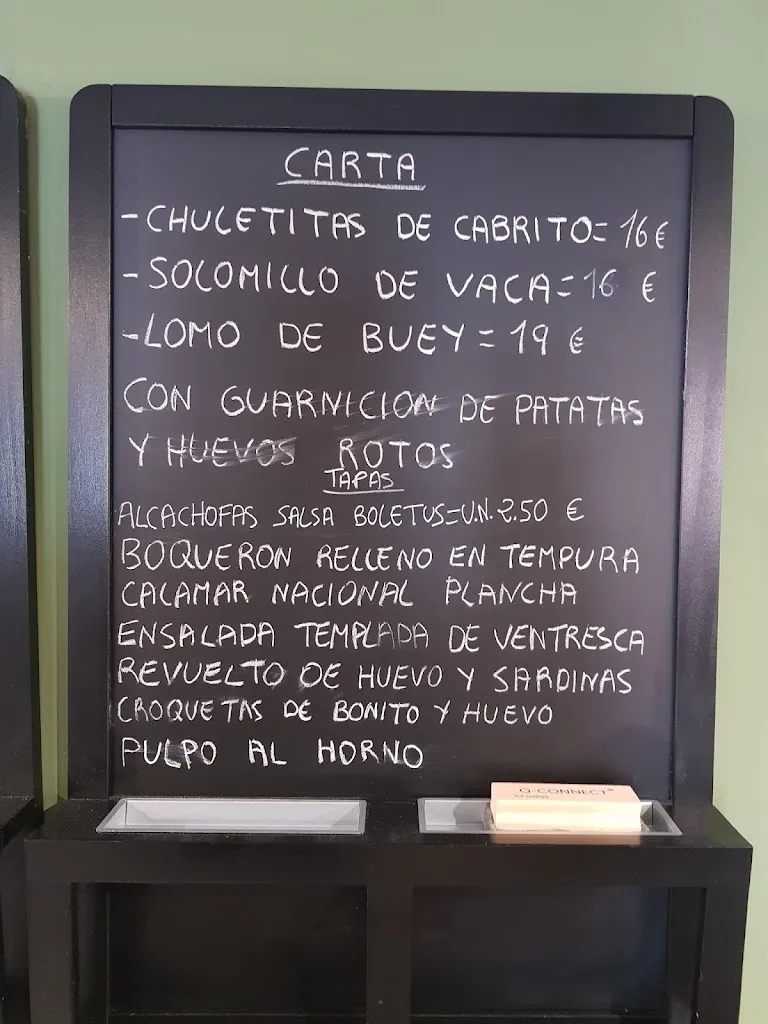 CARTA
- CHULETITAS DE CABRITO= 16 €
- SOLOMILLO DE VACA= 16 €
- LOMO DE BUEY = 19 €
CON GUARNICION DE PATATAS
Y HUEVOS ROTOS
TAPAS
ALCACHOFAS SALSA BOLETUS=U.N. 2.50 €
BOQUERON RELLENO EN TEMPURA
CALAMAR NACIONAL PLANCHA
ENSALADA TEMPLADA DE VENTRESCA
REVUELTO DE HUEVO Y SARDINAS
CROQUETAS DE BONITO Y HUEVO
PULPO AL HORNO
Q-CONNECT®